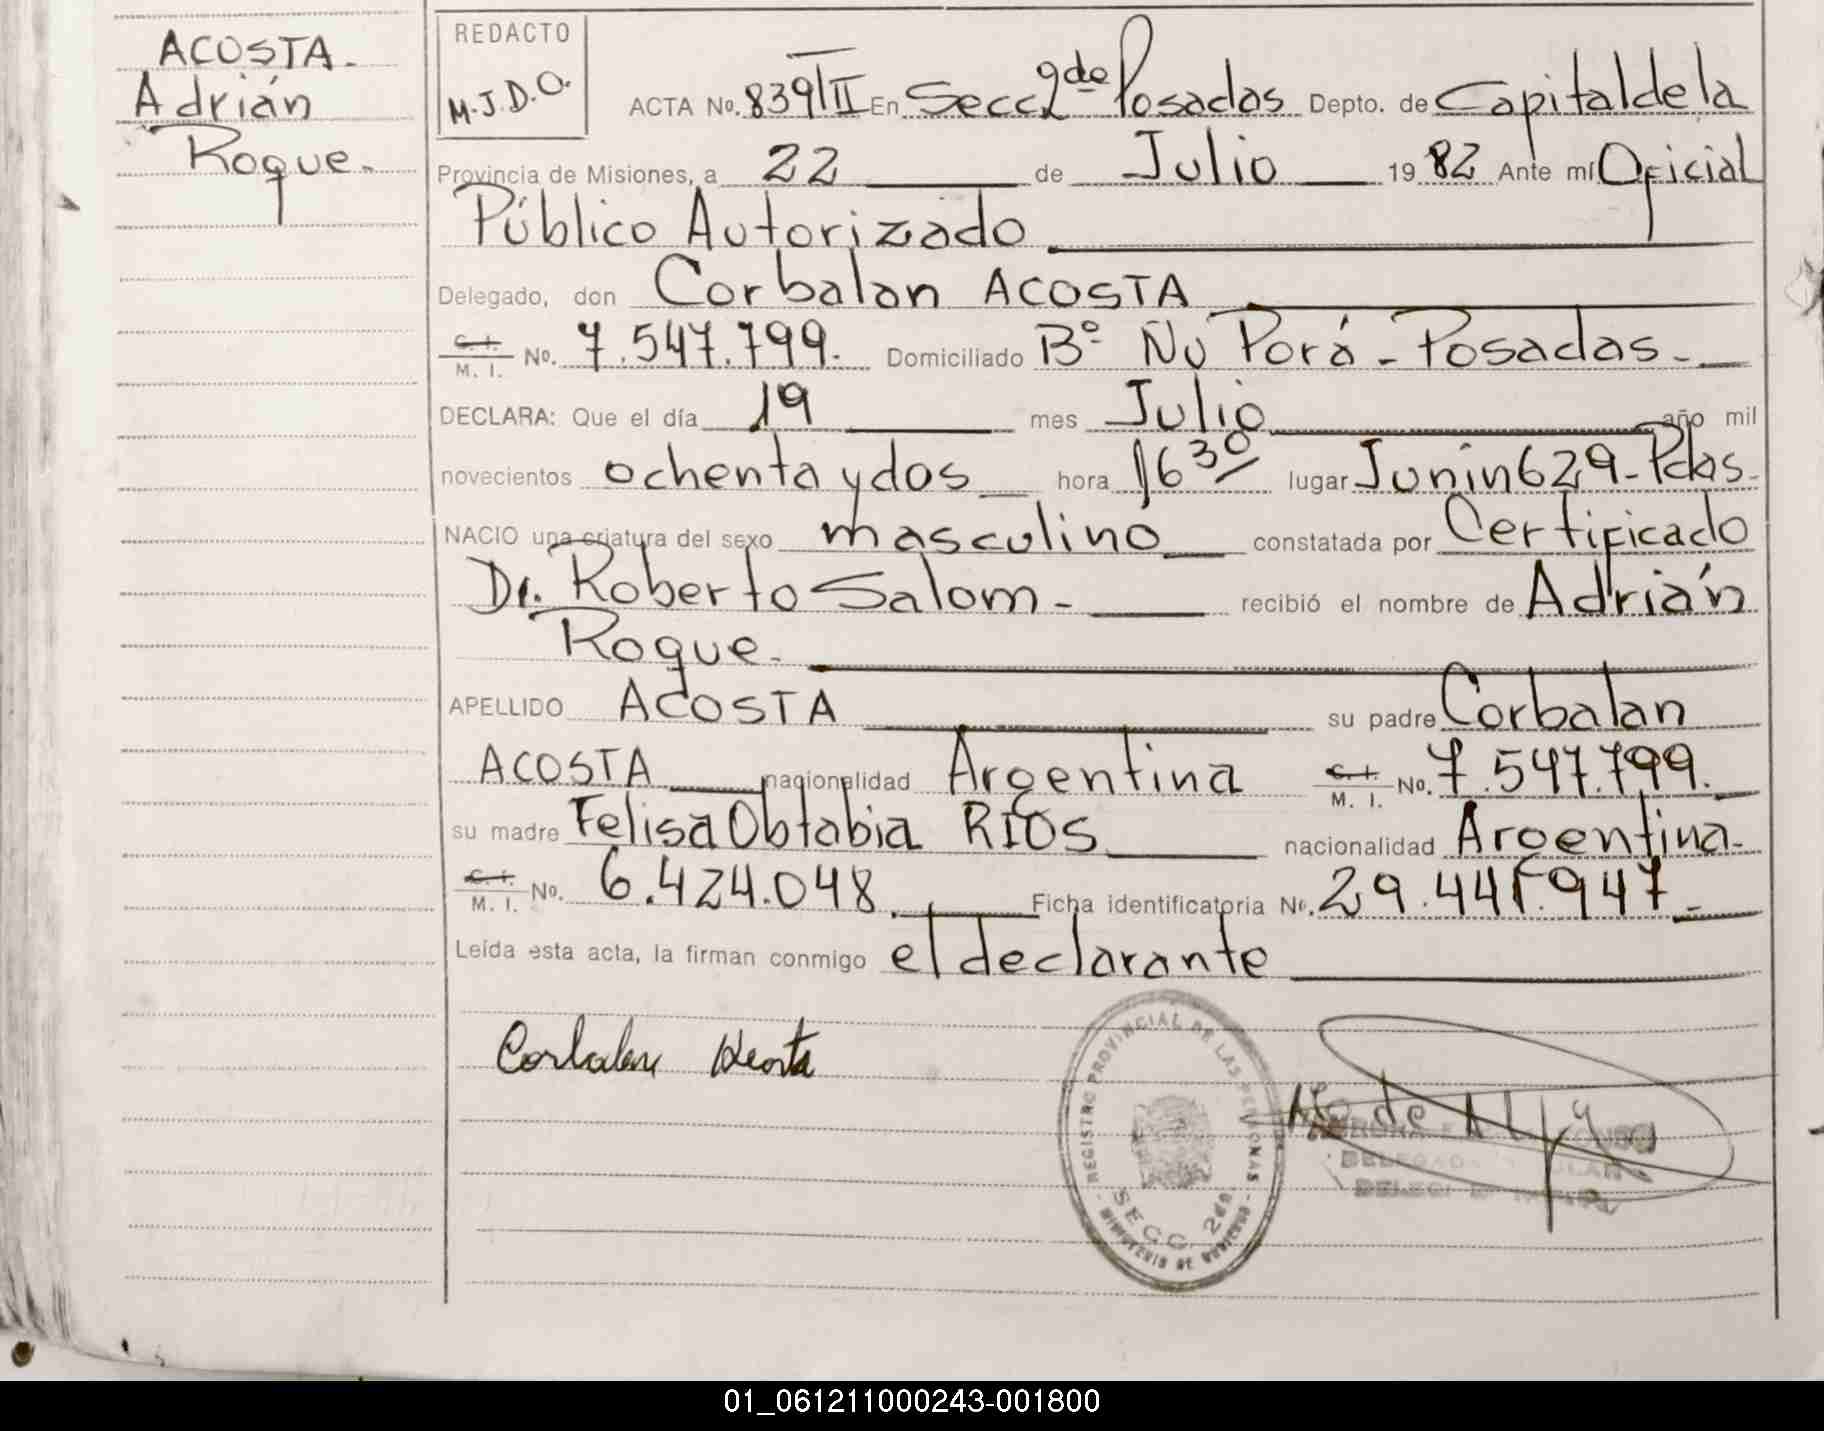 ACOSTA.
Adrián
Roque.
REDACTO
M.J.D.O.
ACTA No. 839/II En Secc 2da Posadas Depto. de Capital de la
Provincia de Misiones, a 22 de Julio 1982 Ante mí Oficial
Público Autorizado
Delegado, don Corbalan ACOSTA
C. I. M. I. No. 7.547.799. Domiciliado Bº Ñu Porá - Posadas.
DECLARA: Que el día 19 mes Julio año mil
novecientos ochenta y dos hora 1630 lugar Junin 629 - Pdas.
NACIO una criatura del sexo masculino constatada por Certificado
Dr. Roberto Salom - recibió el nombre de Adrián
Roque.
APELLIDO ACOSTA su padre Corbalan
ACOSTA nacionalidad Argentina C. I. M. I. No. 7.547.799.
su madre Felisa Obtabia RIOS nacionalidad Argentina.
C. I. M. I. No. 6.424.048. Ficha identificatoria No. 29.441.947.
Leída esta acta, la firman conmigo el declarante
Corbalan Acosta
REGISTRO PROVINCIAL DE LAS PERSONAS
SECC. 2da
MINISTERIO DE GOBIERNO
01_061211000243-001800